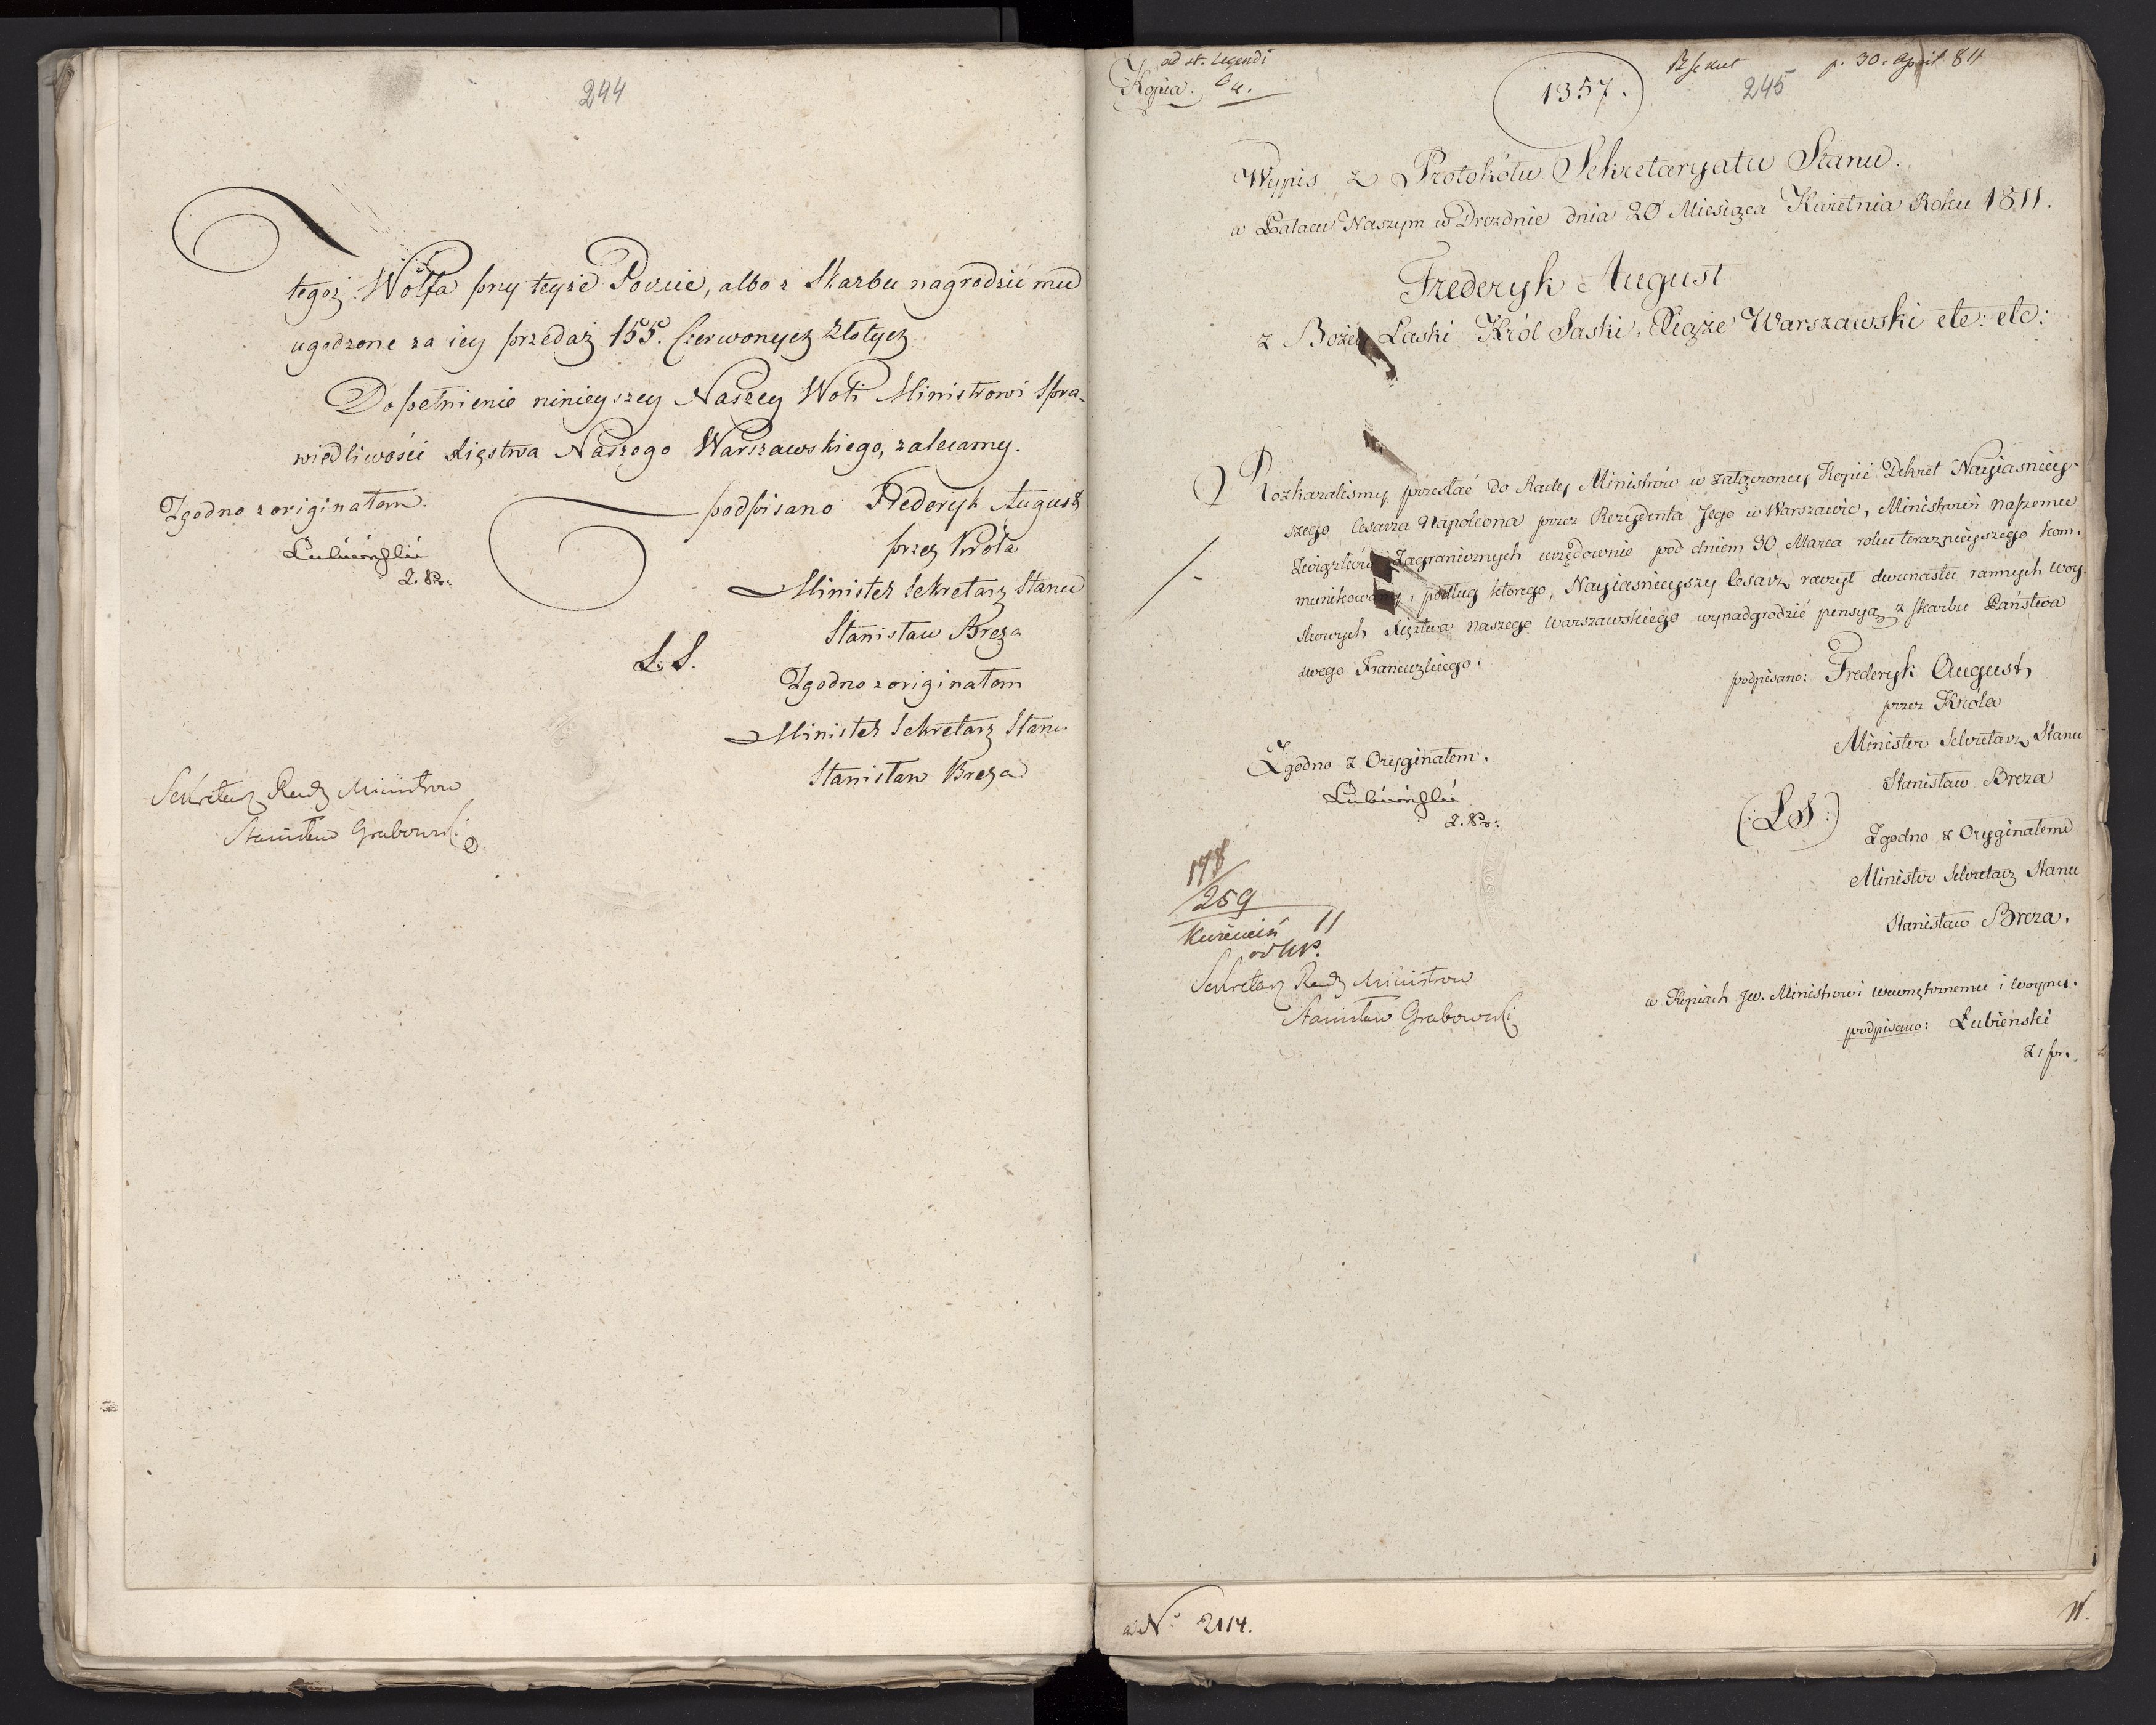 244
tegoż Wolfa przy teyże Poczcie, albo z Skarbu nagrodzić mu
ugodzone za iey przedaż 155. Czerwonych Złotych
Dopełnienie ninieyszey Naszey Woli Ministrowi Spra-
wiedliwości Xięstwa Naszego Warszawskiego, zalecamy.
Zgodno z originałem.
Łubieński
podpisano Frederyk August
przez Króla
Minister Sekretarz Stanu
Stanisław Breza
L. S.
Zgodno z originałem
Minister Sekretarz Stanu
Stanisław Breza
Sekretarz Rady Ministrow
Stanisław Grabowski
ad st. legendi
Kopia.
1357.
p. 30. April 811
245
Wypis z Protokółu Sekretaryatu Stanu.
w Pałacu Naszym w Dreznie dnia 20 Miesiąca Kwietnia Roku 1811.
Frederyk August
z Bożey Łaski Król Saski, Xiąże Warszawski etc: etc:
Rozkazaliśmy przesłać do Rady Ministrów w załączoney Kopii Dekret Nayiasniey-
szego Cesarza Napoleona przez Rezydenta Jego w Warszawie, Ministrowi naszemu
Związków Zagranicznych urzędownie pod dniem 30 Marca roku teraznieyszego kom-
munikowany, podług którego, Nayiasnieyszy Cesarz raczył dwunastu rannych woy-
skowych Xięztwa naszego Warszawskiego wynadgrodzić pensyą z skarbu Państwa
swego Francuzkiego.
podpisano: Frederyk August,
przez Króla
Minister Sekretarz Stanu
Stanisław Breza
Zgodno z Oryginałem.
Łubieński
(: LS :)
Zgodno z Oryginałem
Minister Sekretarz Stanu
Stanisław Breza.
178
259
Kwiecień 11
Sekretarz Rady Ministrow
Stanisław Grabowski
w Kopiach Jw. Ministrowi wewnętrznemu i woyny.
podpisano: Łubieński
z, pr.
aNo 2114.